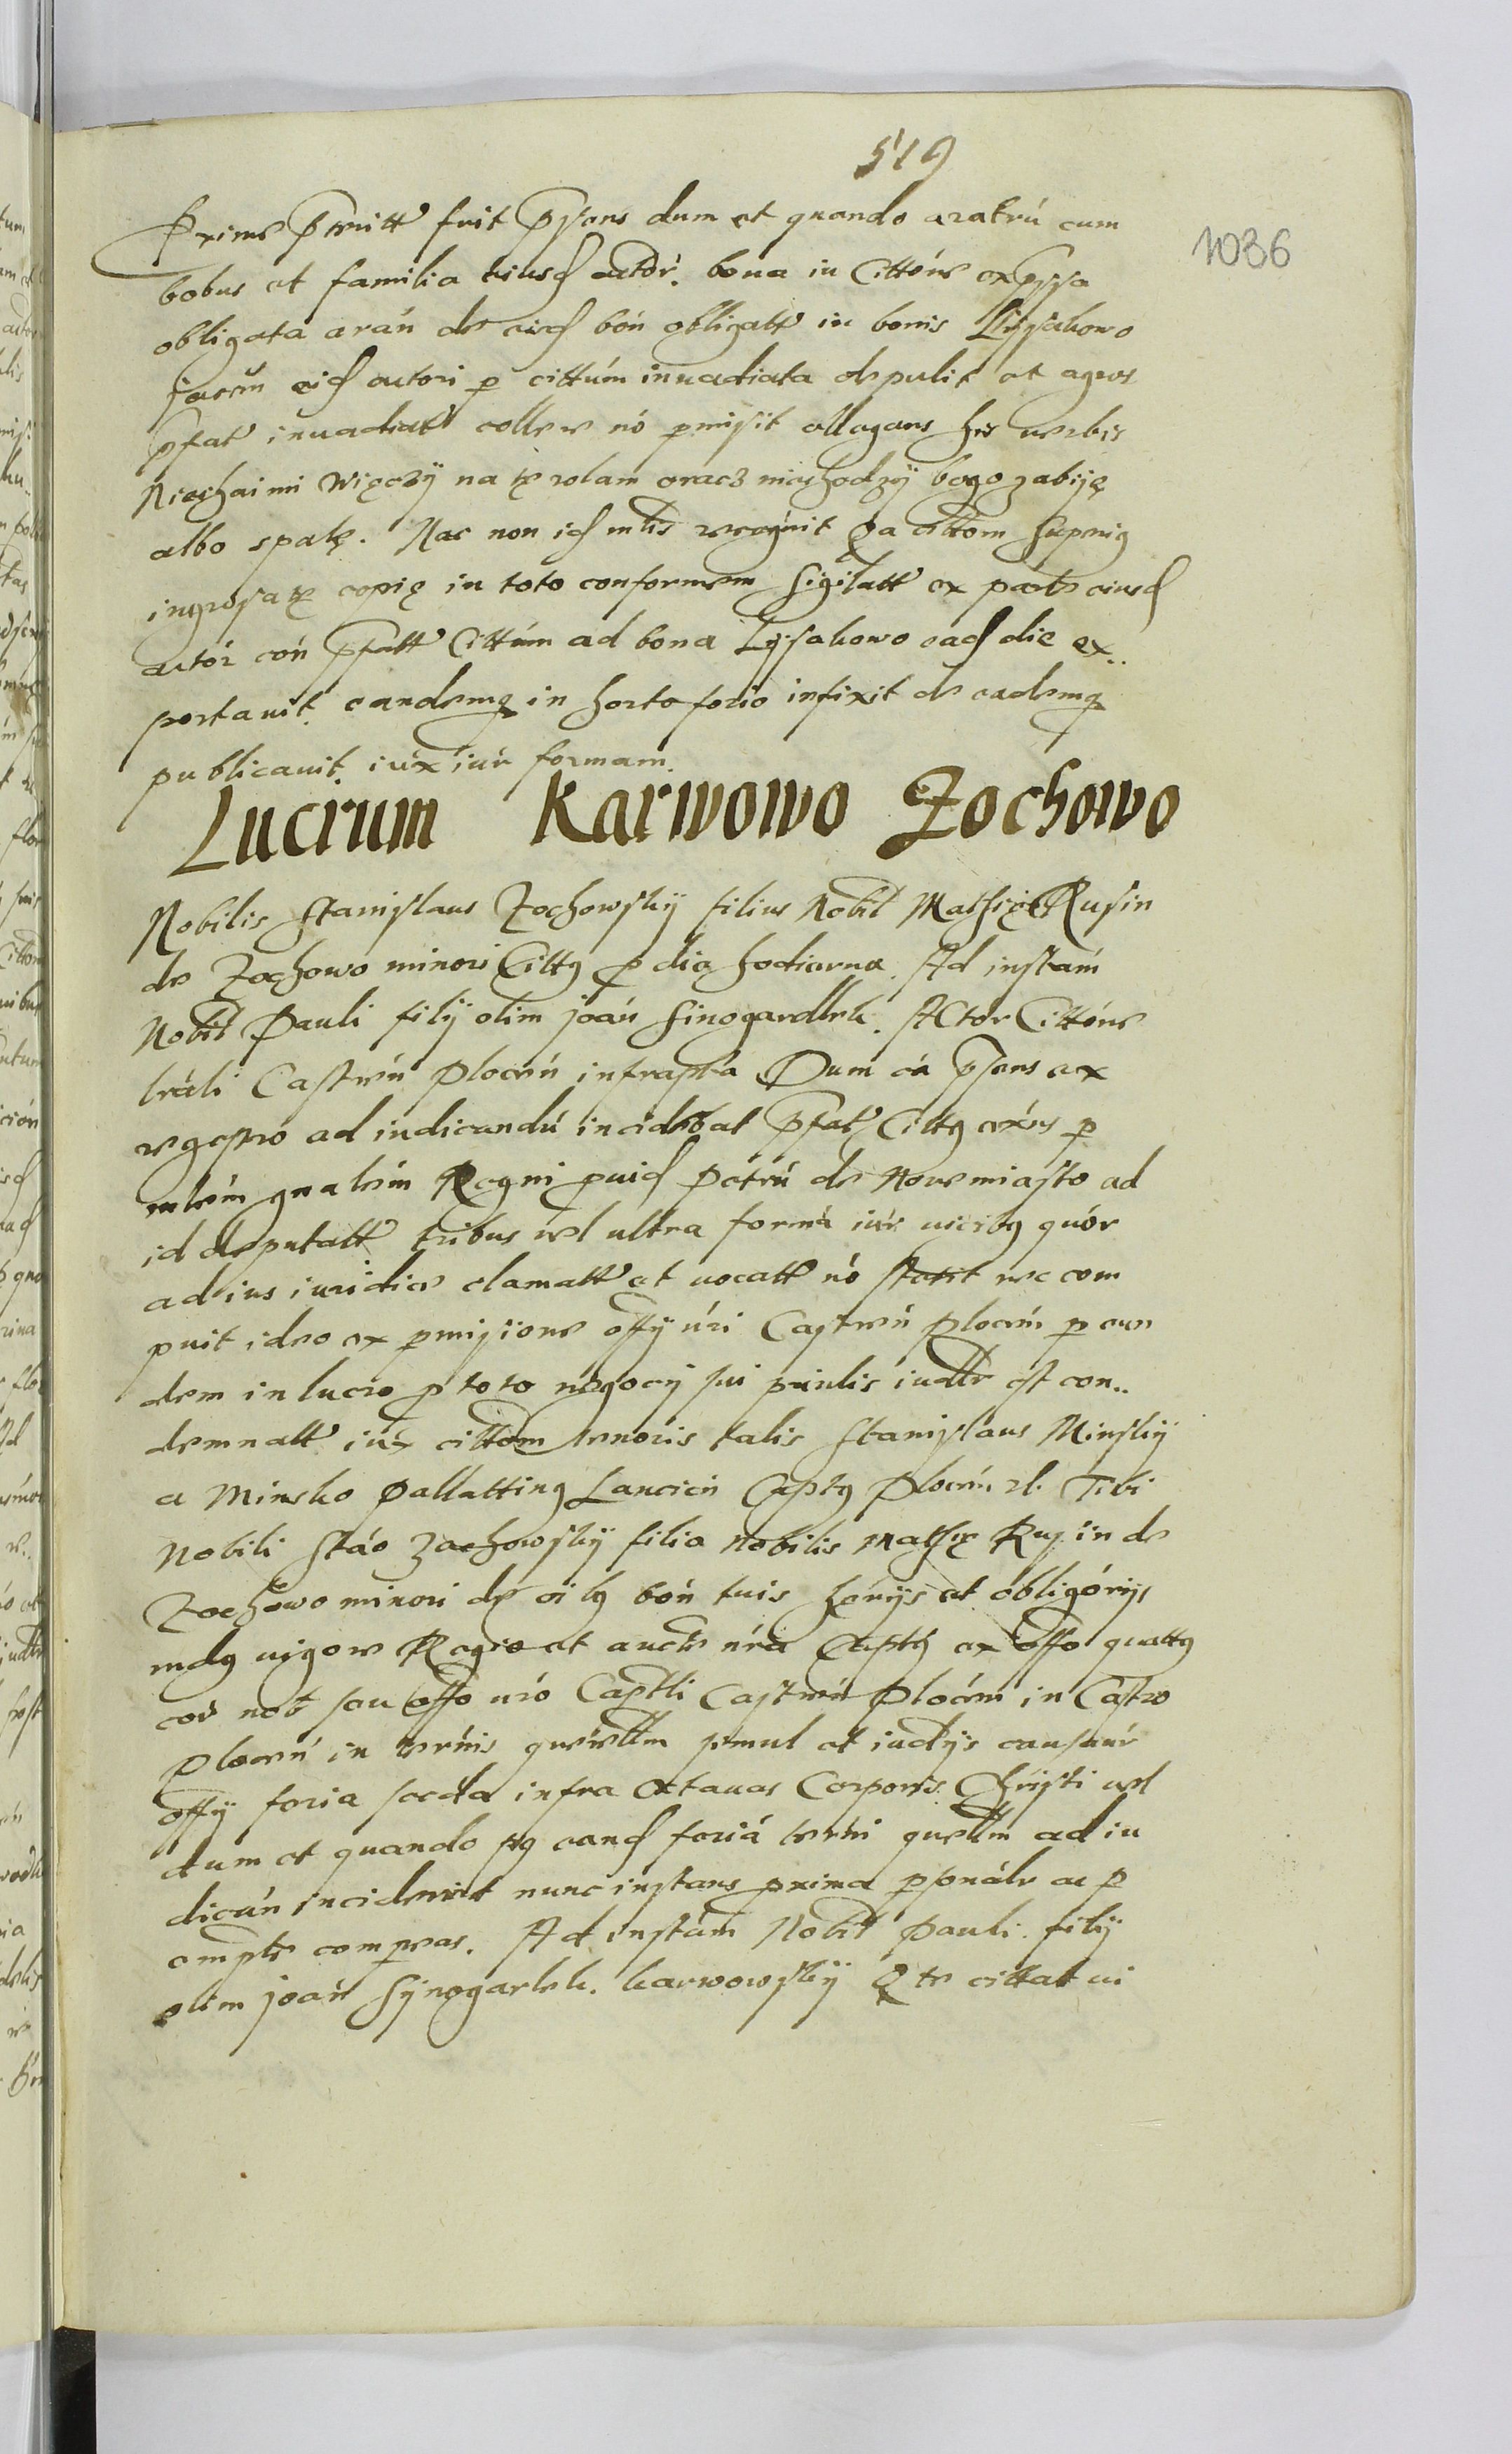 519
1036
Proxime pretnitt fuit psens dum et quando aratrú cum
bobus et familia eiusd actór. bona in Cittóne expssa
obligata arán de eisd bón obligatt in bonis Lyssakowo
jacen eisd actori p cittúm inuadiata depulit et agros
pfat inuadiat colere nó pmisit allegans his uerbis
Niechai mi więczÿ na tę rolam oracz niechodzÿ bo go zabiję
albo spalę. Nec non id mlis recognit Qa cittom superius
ingrosatę copię in toto conformem Sigilatt ex parte eiusd
actór cón pfatt Cittúm ad bona Lyssakowo ead die ex..
portauit. eandemq in hortoforio infixit de eademq
publicauit. iux iur formam.
Lucrum Karwowo Zochowo
Nobilis Stanislaus Zochowskÿ filius Nobil Mathię Rusin
de Zochowo minori Cittg p dię hodierna. Ad instám
Nobil Pauli filÿ olim joán Sinogardlek. Actor Cittóne
lráli Castren Plocen infrapta Dum cá psens ex
regestro ad iudicandú incidebat pfat Cittg eius p
mlem gnalem Regni puid Petrú de Nouemiasto ad
id deputatt tribus uel ultra formá iúr uicibg quór
ad ius iuridice clamatt et uocatt nó stetit nec com
puit ideo ex pmisione offÿ nri Castren plocen p eun
dem in lucro p toto negocÿ sui prinlis iudtr est con..
demnatt iux cittom tenoris talis Stanislaus Minskÿ
a Minsko Pallatting Lancicin Captg Plocen zl. Tibi
Nobili Stáo Zochowskÿ filio Nobilis Mathię Rusin de
Zochowo minori de oibg bón tuis herijs et obligórijs
mdg uigore Regie et aucte nra Captg ex offo quattg
cor nob seu offo nro Captli Castren Plocen in Castro
Plocen in termis querellm simul et iudÿs causaur
offÿ feria secda infra Octauas Corporis Christi uel
dum et quando pg eand feriá termi quellm ad iu
dicán inciderint nunc instans proxima psonálr ac p
emptr compeas. Ad instám Nobil Pauli filÿ
olim joán Sÿnogarlek. karwowskÿ Q te cittat ui